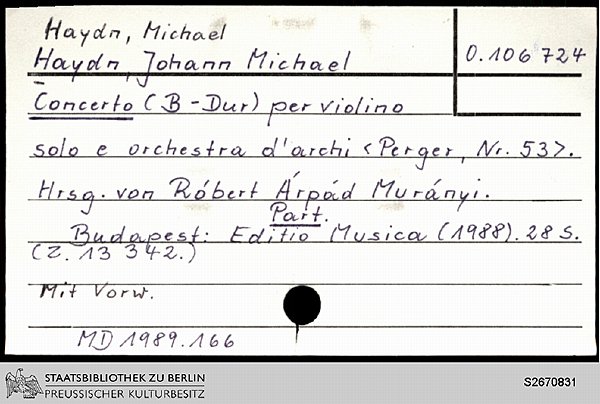 Haydn, Michael
Haydn, Johann Michael
O.106 724
Concerto (B-Dur) per violino
solo e orchestra d'archi <Perger, Nr. 53>.
Hrsg. von Róbert Árpád Murányi.
Part.
Budapest: Editio Musica (1988). 28 S.
(Z. 13 342.)
Mit Vorw.
MD 1989.166
STAATSBIBLIOTHEK ZU BERLIN
PREUSSISCHER KULTURBESITZ
S2670831